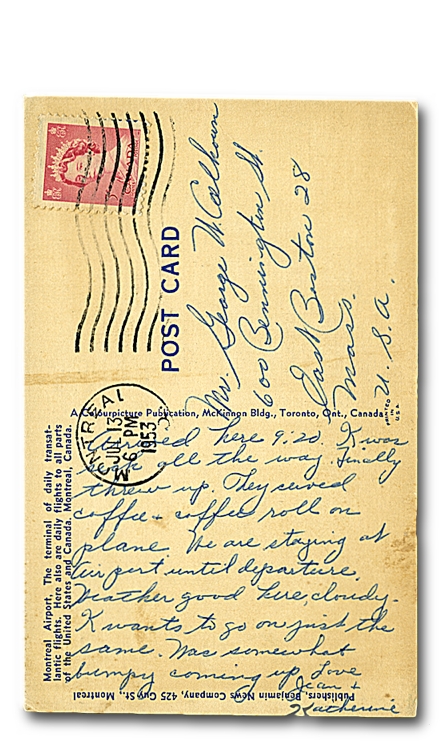 POST CARD
MONTREAL
JUL 13
6 PM
1953
Mr. George W. Calhoun
600 Bennington St.
East Boston 28
Mass.
U. S. A.
A Colourpicture Publication, McKinnon Bldg., Toronto, Ont., Canada
PRINTED
IN
U.S.A.
Montreal Airport, The terminal of daily transat-
lantic flights. Here also are daily flights to all parts
of the United States and Canada. Montreal, Canada.
here 9:20. K was
all the way. Finally
threw up. They served
coffee + coffee roll on
plane. We are staying at
airport until departure.
Weather good here, cloudy.
K wants to go on just the
same. Was somewhat
bumpy coming up. Love
Jean +
Katherine
Publishers, Benjamin News Company, 425 Guy St., Montreal